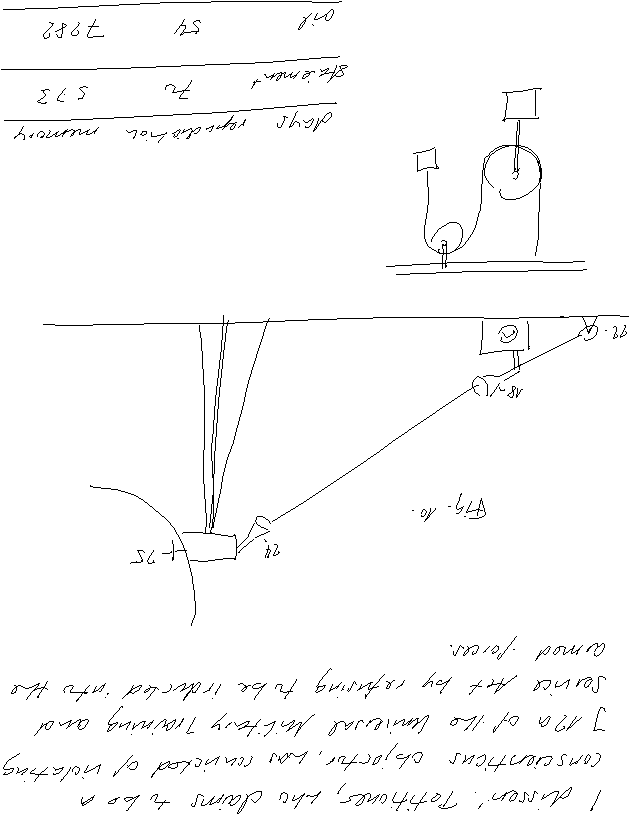 I dissen'. Petitioner, who claims to be a
conscientious objector, was convicted of violating
§ 12 a of the Universal Military Training and
Service Act by refusing to be inducted into the
armed forces.
24
75
Fig. 10.
18
22.
days repudiation memory
statement 72 573
oil 54 7982